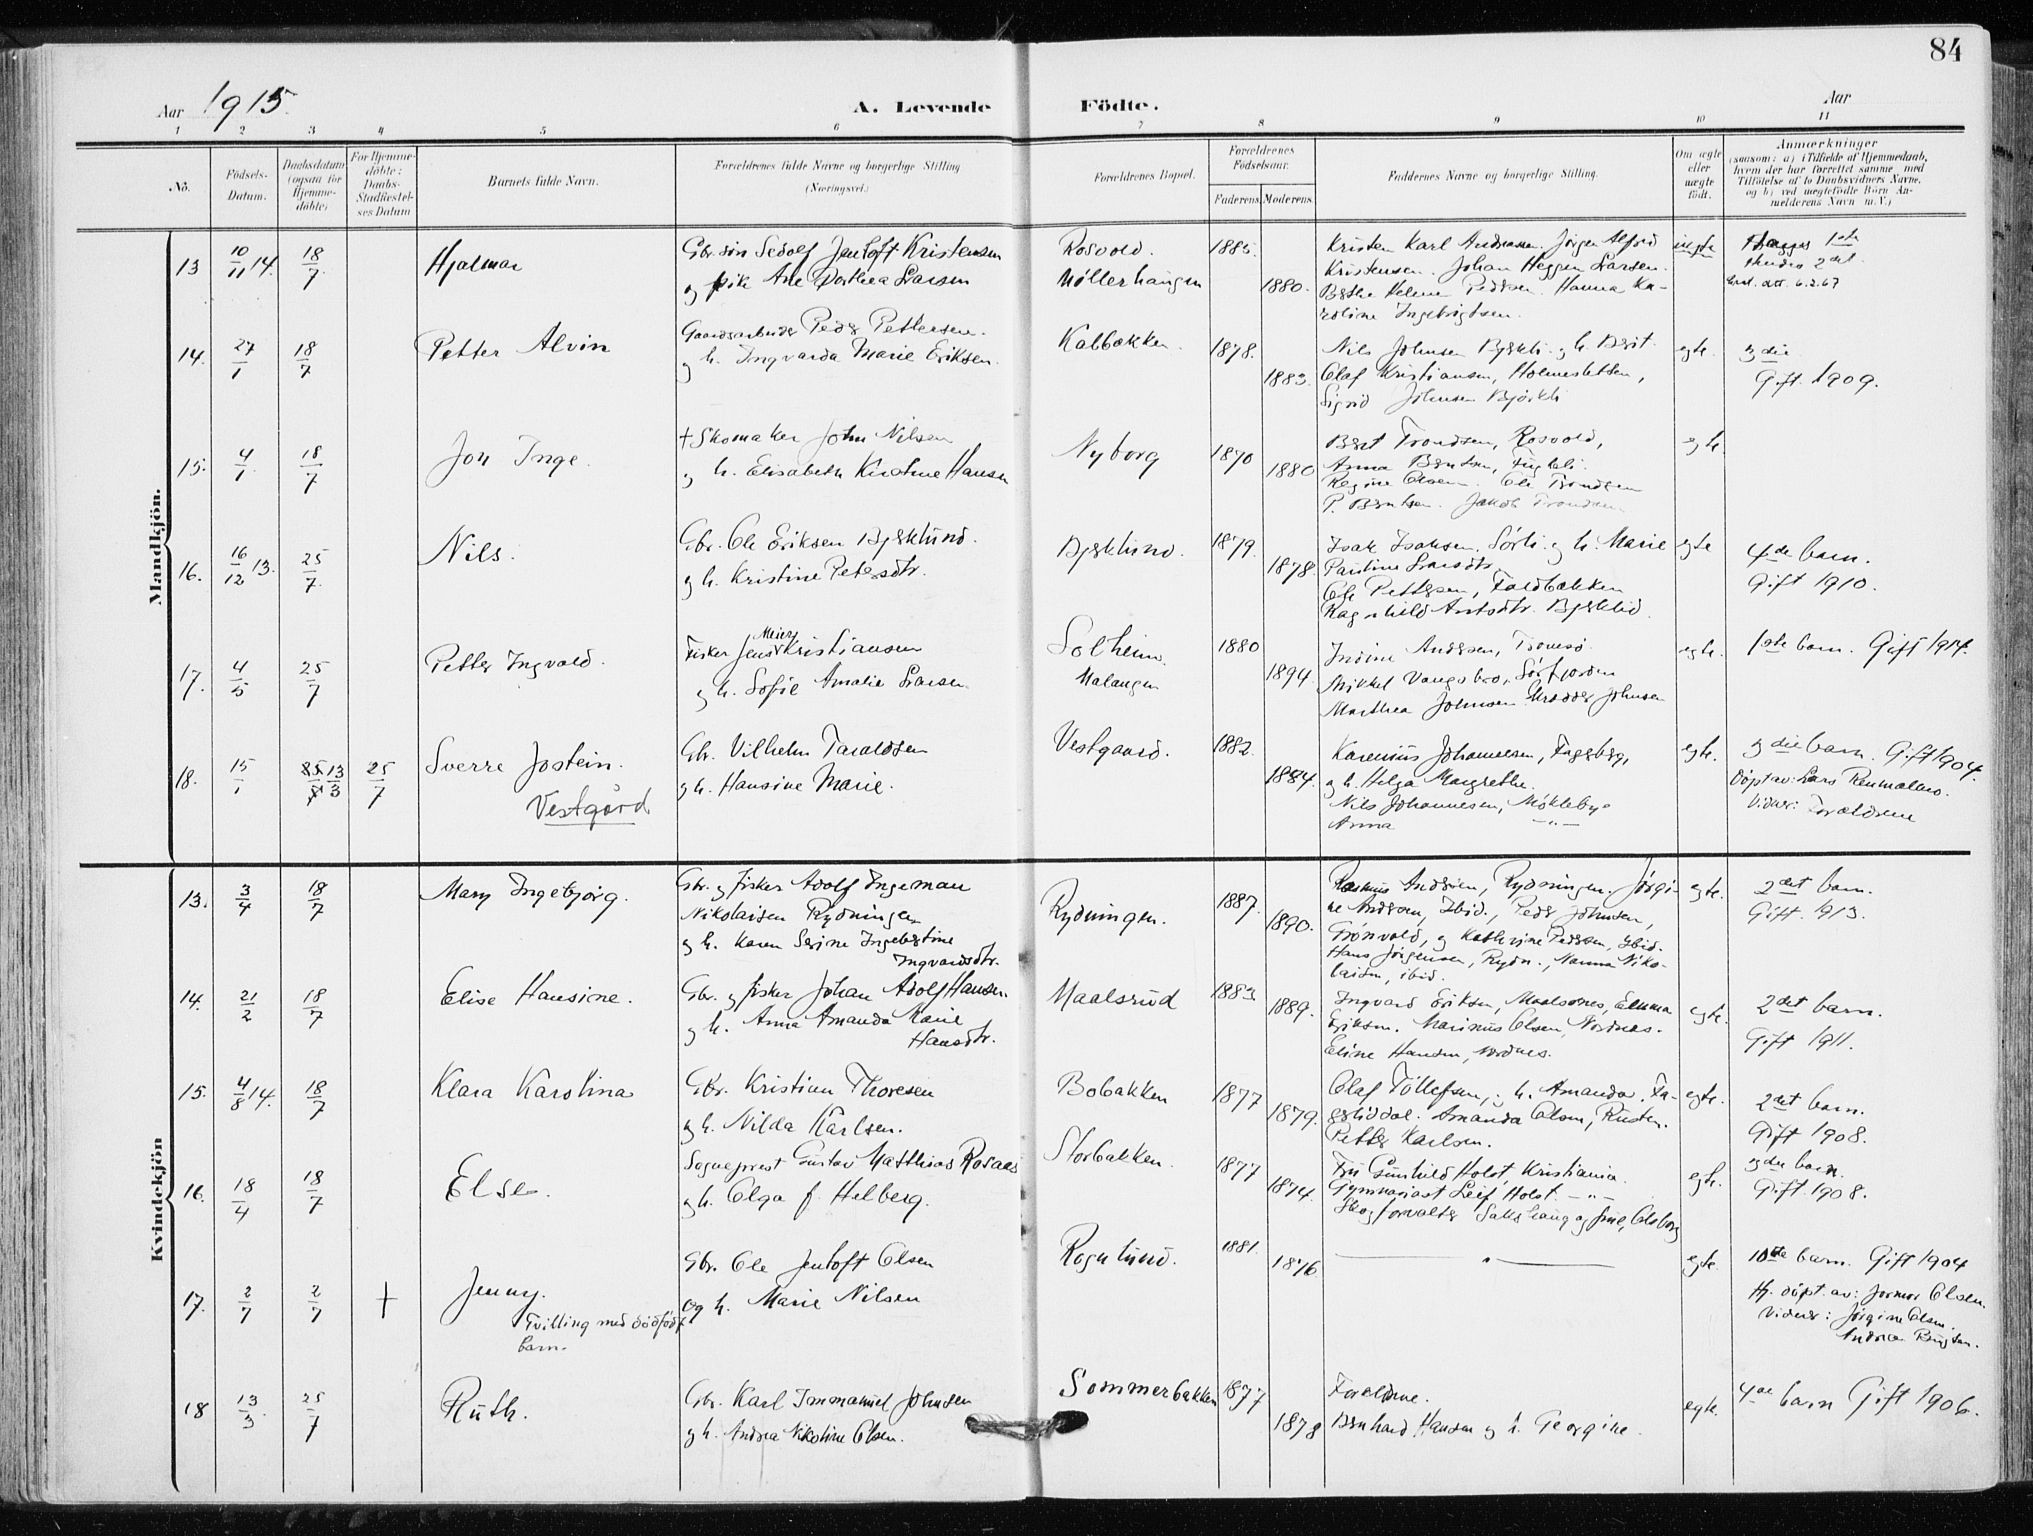 84
Aar 1915.
A. Levende Födte.
Aar
1 2 3 4 5 6 7 8 9 10 11
No.
Födsels-Datum.
Daabsdatum (ogsaa for Hjemme-döbte)
For Hjemme-döbte: Daabs-Stadfæstel-ses Datum
Barnets fulde Navn.
Forældrenes fulde Navne og borgerlige Stilling (Næringsvei.)
Forældrenes Bopæl.
Forældrenes Födselsaar.
Faderens. Moderens.
Faddernes Navne og borgerlige Stilling.
Om ægte eller uægte födt.
Anmærkninger
(saasom: a) i Tilfælde af Hjemmedaab,
hvem der har forrettet samme med
Tilföielse af to Daabsvidners Navne,
og b) ved uægtefödte Börn An-
melderens Navn m. V.)
Mandkjön.
13 10/11 14. 18/7 Hjalmar
Gbr. søn Sedolf Jentoft Kristensen
og pike Ane Dorthea Larsen
Rosvold.
Møllerhaugen
1885. 1880.
Kristen Karl Andreassen. Jørgen Alfred
Kristensen. Johan Heggen Larsen.
Berthe Helene Pedersen. Hanna Ka-
roline Ingebrigtsen.
uegte
14. 27/1 18/7 Petter Alvin
Gaardsarbeider Peder Pettersen.
og h. Ingvarda Marie Eriksen.
Kalbakken. 1878. 1883.
Nils Johnsen Bjerkli og h. Berit
Olaf Kristiansen, Holmesletten,
Sigrid Johnsen Bjørkli
egte.
3die
Gift. 1909.
15. 4/1. 18/7 Jon Inge.
+ Skomaker John Nilsen
og h. Elisabeth Kristine Hansen
Nyborg 1870 1880
Berit Trondsen, Rosvold,
Anna Berntsen, Fugleli.
Regine Olsen. Ole Trondsen
P. Berntsen. Jakob Trondsen
egte
16. 16/12 13. 25/7. Nils.
Gbr. Ole Eriksen Bjerklund.
og h. Kristine Petersdtr.
Bjerklund. 1879. 1878.
Isak Isaksen. Sørli og h. Marie
Pauline Larsdtr.
Ole Pettersen, Foldbakken
Ragnhild Antsdtr. Bjerklid
egte
4de barn.
Gift 1910.
17. 4/5 25/7 Petter Ingvald.
Meier
Fisker Jens Kristiansen
og h. Sofie Amalie Larsen.
Solheim.
Malangen
1880 1894.
Indine Andersen, Tromsø.
Mikkel Vangsbro, Sørfjorden
Marthea Johnsen Johnsen
egte.
1ste barn. Gift 1914.
18. 15/1 25/7 13/3 25/7 Sverre Jostein.
Vestgård
Gbr. Vilhelm Taraldsen
og h. Hansine Marie.
Vestgaard. 1882. 1884.
Karenius Johannesen, Fagerberg,
og h. Helga Margrethe.
Nils Johannesen, Møkleby
Anna -"-
egte.
3die barn. Gift 1904.
Döpt av: Lars Renmælmo.
Vidner: Forældrene
Kvindekjön
13. 3/4 18/7 Mary Ingebjørg.
Gbr. og fisker Adolf Ingeman
Nikolaisen Rydningen
og h. Karen Serine Ingebertine
Ingvardsdtr.
Rydningen. 1887. 1890.
Rasmus Andersen, Rydningen. Jørgi-
ne Andersen, Ibid., Peder Johnsen,
Grønvold, og Kathrine Pedersen, Ibid.
Hans Jørgensen, Rydn., Nanna Niko-
laisen, ibid.
egte.
2det barn.
Gift. 1913.
14. 21/2 18/7 Elise Hansine.
Gbr. og fisker Johan Adolf Hansen.
og h. Anna Amanda Marie
Hansdtr.
Maalsrud 1883 1889.
Ingvard Eriksen, Maalsnes, Emma
Eriksen. Marinus Olsen, Nordnes.
Eline Hansen, Nordnes.
egte.
2det barn.
Gift 1911.
15. 4/8 14. 18/7 Klara Karolina
Gbr. Kristian Thoresen
og h. Nilda Karlsen.
Bobakken 1877 1879.
Olaf Tollefsen, og h. Amanda, Fa-
gerliddal. Amanda Olsen, Rusten.
Petter Karlsen.
egte.
2det barn.
Gift 1908.
16. 18/4 18/7 Else.
Sogneprest Gustav Matthias Rosaas
og h. Olga f. Helberg.
Storbakken. 1877 1874.
Fru Gunhild Holst, Kristiania.
Gymnasiast Leif Holst -"-
Skogforvalter Sakshaug og frue, Olsborg
egte.
3die barn.
Gift. 1908.
17. 2/7 2/7 + Jenny.
Tvilling med dödfödt
barn.
Gbr. Ole Jentoft Olsen
og h. Marie Nilsen
Rognlund. 1881. 1876.
"
egte.
10de barn. Gift 1904
Hj. döpt. av: Jormor Olsen.
Vidner: Jørgine Olsen.
18 13/3. 25/7 Ruth.
Gbr. Karl Immanuel Johnsen
og h. Andrea Nikoline Olsen.
Sommerbakken 1877 1878
Foreldrene.
Bernhard Hansen og h. Georgine.
egte.
4de barn Gift 1906.